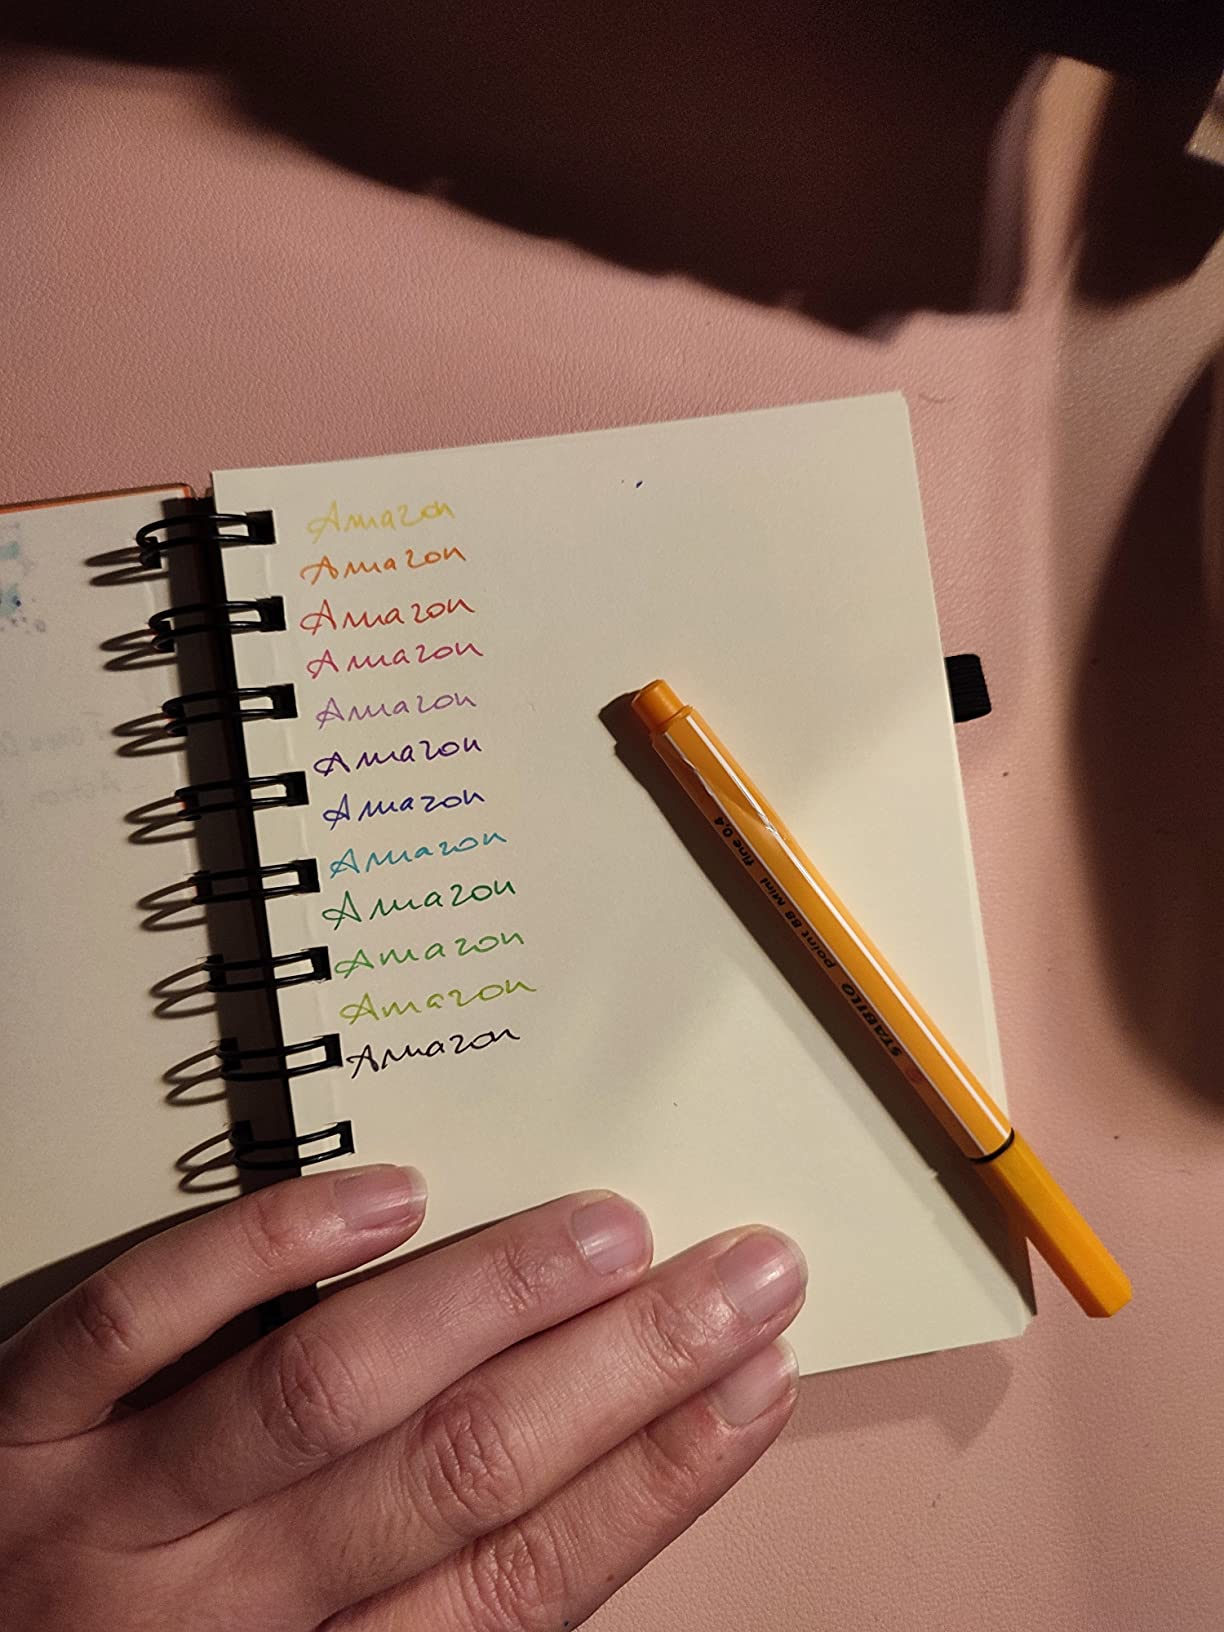 Amazon
Amazon
Amazon
Amazon
Amazon
Amazon
Amazon
Amazon
Amazon
Amazon
Amazon
Amazon
STABILO point 88 Mini fine 0,4